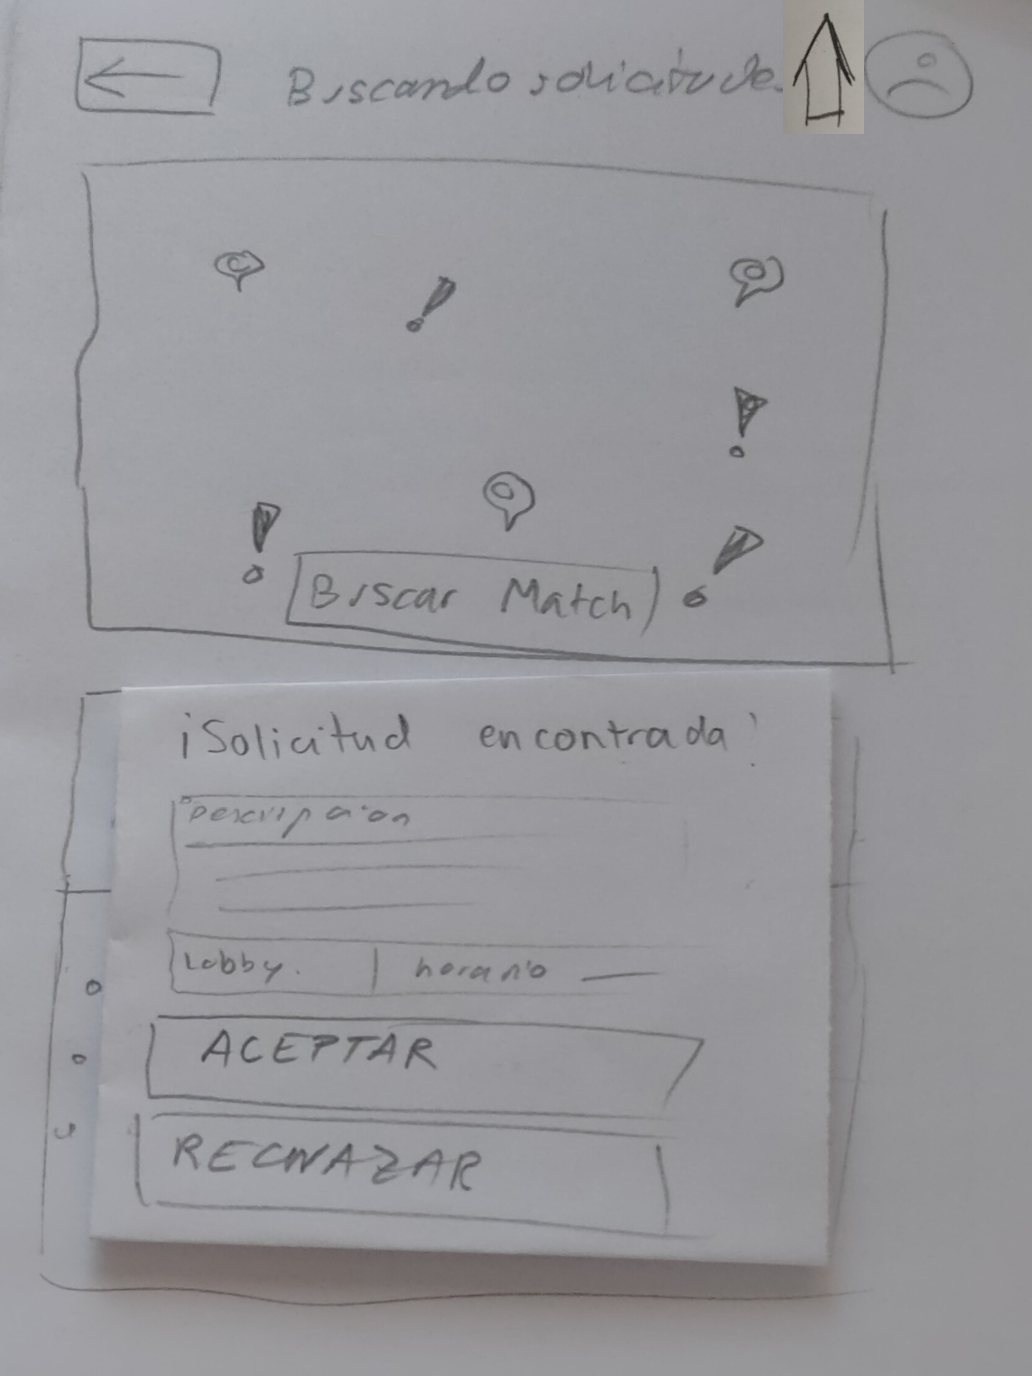 Buscando solicitude
Buscar Match
¡Solicitud encontrada!
Descripcion
Lobby. horario
ACEPTAR
RECHAZAR